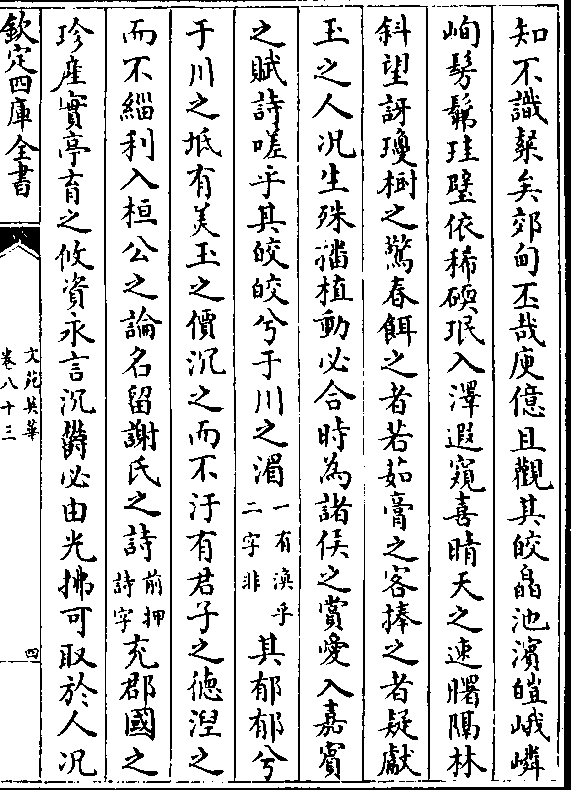 知不識櫱矣郊甸丕哉庾億且觀其皎皛池濱皚峨嶙
峋髣髴珪璧依稀碝珉入澤遐窺喜晴天之速曙隔林
斜望訝瓊樹之驚春餌之者若茹膏之客捧之者疑獻
玉之人況生殊播植動必合時為諸侯之賞愛入嘉賓
之賦詩嗟乎其皎皎兮于川之湄一有渙乎二字非其郁郁兮
于川之坻有美玉之價沉之而不汙有君子之德湼之
而不緇利入桓公之論名留謝氏之詩前押詩字充郡國之
珍産實亭育之攸資永言沉鬱必由光拂可取於人況
欽定四庫全書
文苑英華
卷八十三
四